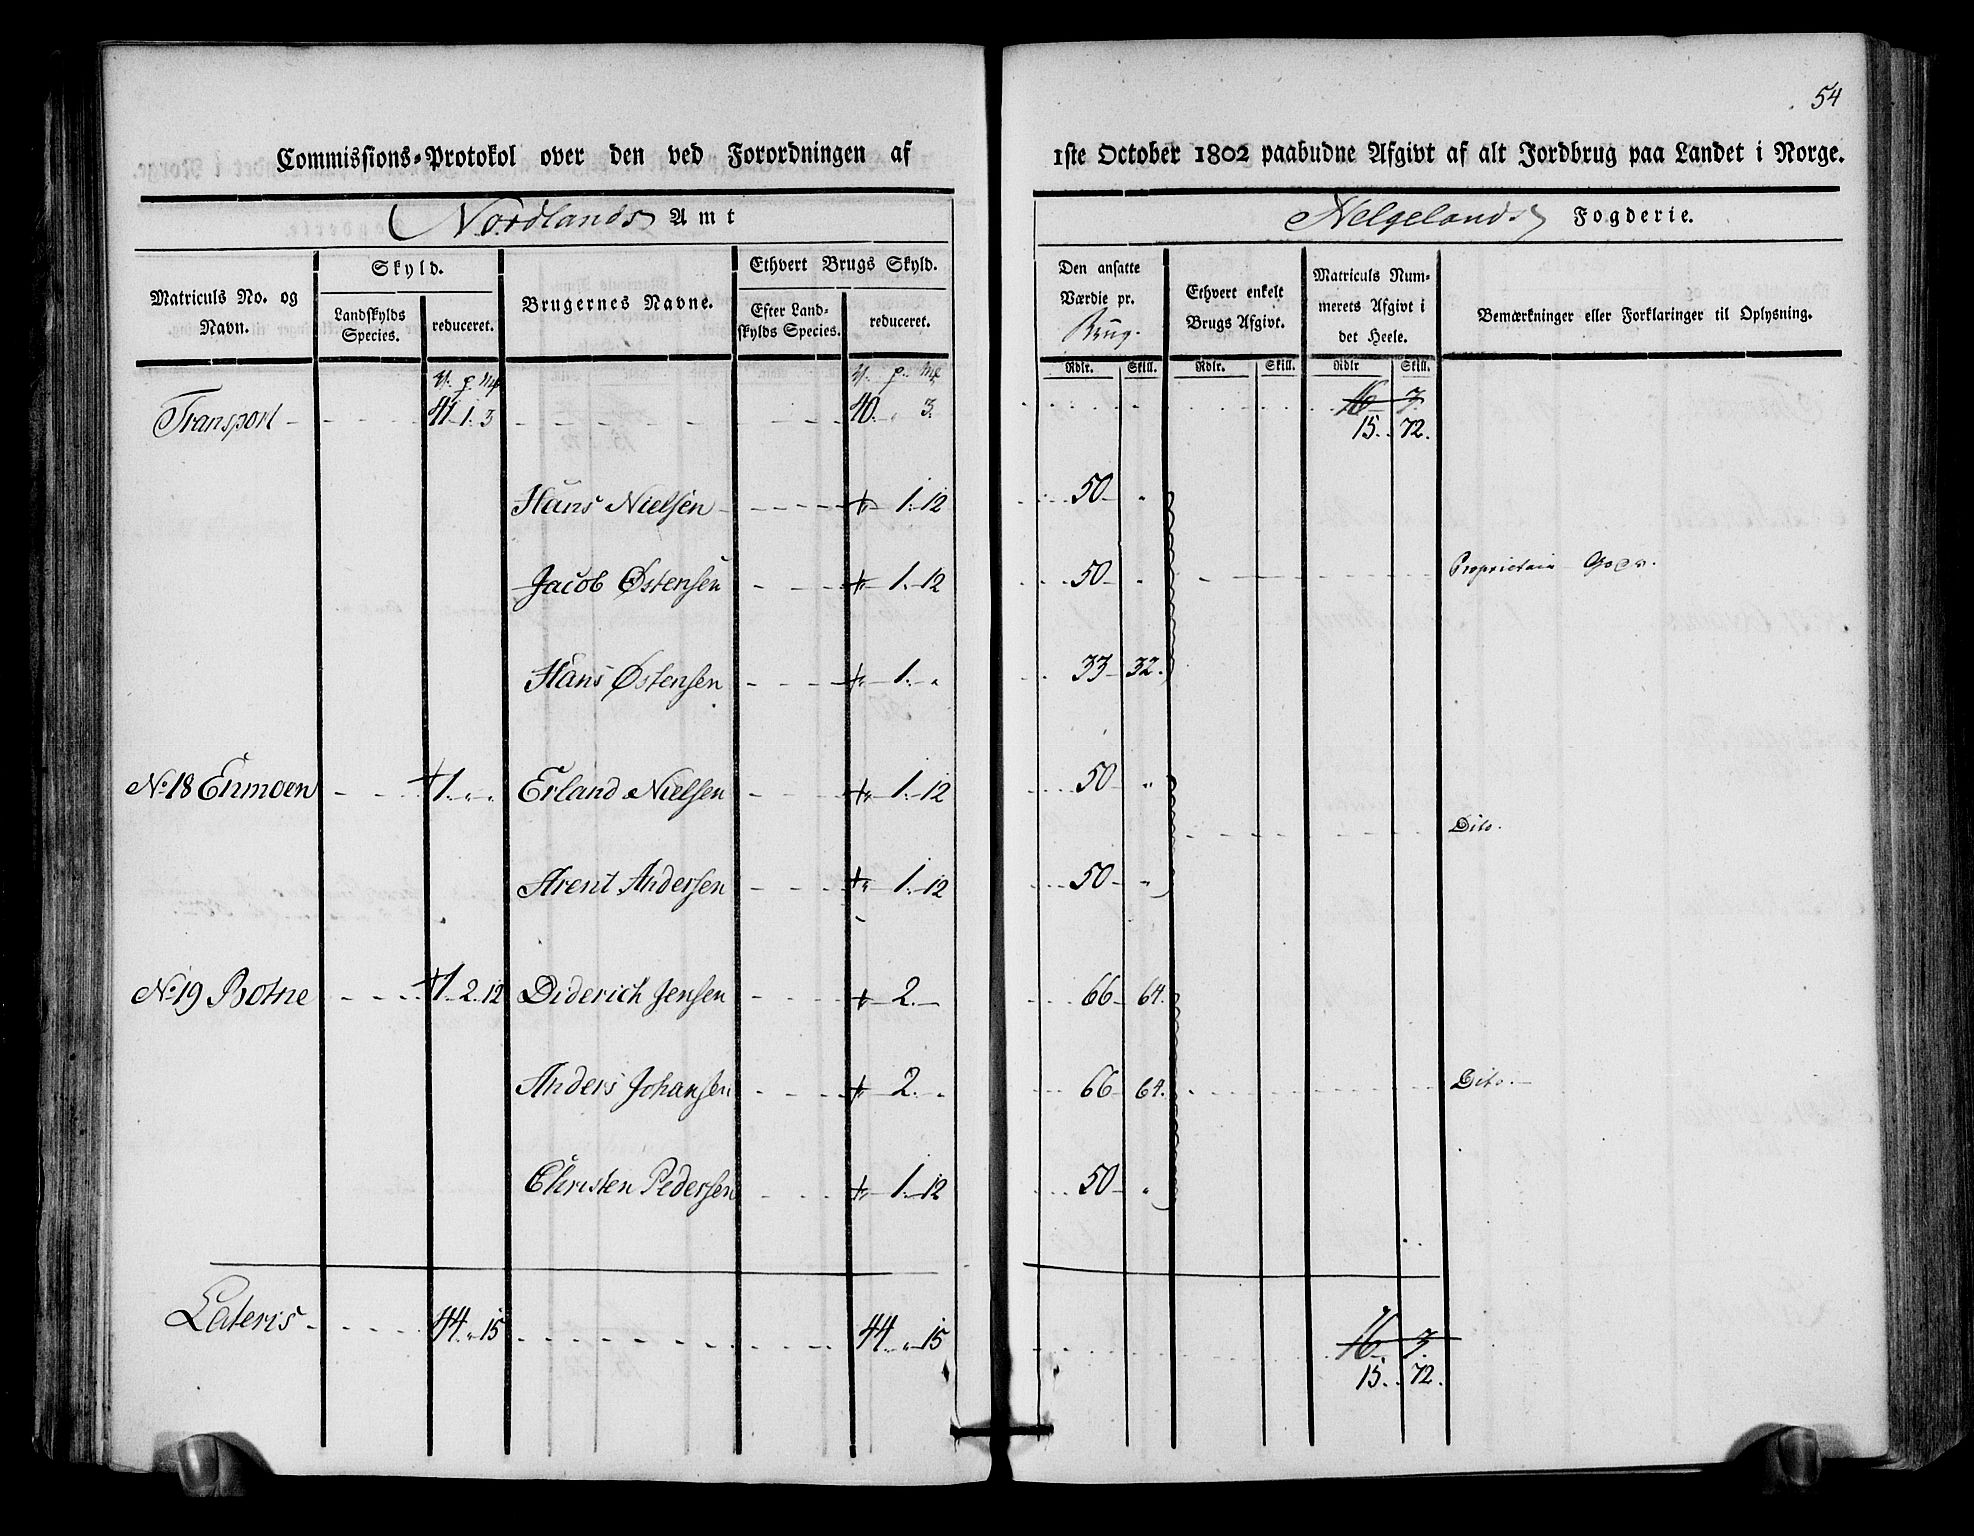 54
Commissions-Protokol over den ved Forordningen af 1ste October 1802 paabudne Afgivt af alt Jordbrug paa Landet i Norge.
Nordlands Amt Helgelands Fogderie.
Matriculs No. og Navn. Skyld. Landskylds Species. reduceret. Brugernes Navne. Ethvert Brugs Skyld. Efter Landskylds Species. reduceret. Den ansatte Værdie pr. Brug. Ethvert enkelt Brugs Afgivt. Matriculs Nummerets Afgivt i det Heele. Bemærkninger eller Forklaringer til Oplysning.
V. p. Mk V. p. Mk Rdlr. Skill. Rdlr. Skill. Rdlr Skill.
Transport 41. 1. 3 40. „ 3. 16 7.
15. 72.
Hans Nielsen „ 1. 12 50 „
Jacob Østensen „ 1. 12 50 „ Proprietair Gods.
Hans Østensen „ 1. „ 33 32.
No. 18 Enmoen 1. „ „ Erland Nielsen „ 1. 12 50 „
Dito.
Arent Andersen „ 1. 12 50 „
No. 19 Botne 1. 2. 12 Diderich Jensen „ 2. 66 64.
Anders Johansen „ 2. „ 66 64. Dito.
Christen Pedersen „ 1. 12 50 „
Lateris 44. „ 15 44. „ 15 16 7.
15. 72.